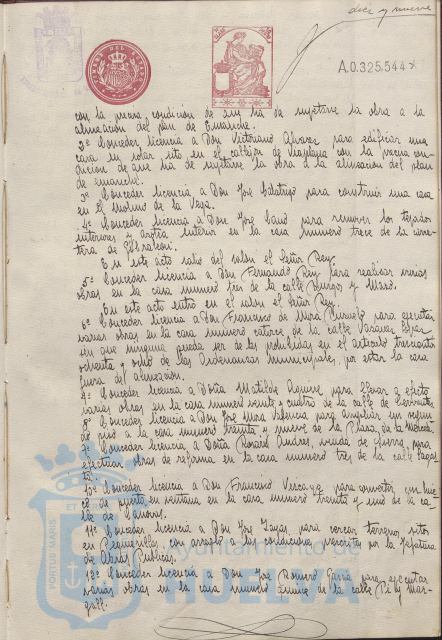 diez y nueve
A.0.325.544
con la precisa condición de que ha de sujetarse la obra a la
alineación del plan de Ensanche.
2º Conceder licencia a Don Victoriano Alvarez para edificar una
casa en solar sito en el cabezo de con la precisa con-
dición de que ha de sujetarse la obra a la alineación del plan
de ensanche.
3º Conceder licencia a Don José para construir una casa
en el Molino de la Vega.
4º Conceder licencia a Don José Cano para remover los tejados
interiores y interior en la casa número trece de la carre-
tera de Gibraleón.
En este acto salió del salón el Señor Rey.
5º Conceder licencia a Don Fernando Rey para realizar varias
obras en la casa número tres de la calle Burgos y Mazo.
En este acto entró en el salón el Señor Rey.
6º Conceder licencia a Don Francisco de Mora para ejecutar
varias obras en la casa número catorce de la calle Vázquez López
sin que ninguna pueda ser de las prohibidas en el artículo trescientos
ochenta y ocho de las Ordenanzas municipales, por estar la casa
fuera de alineación.
7º Conceder licencia a Doña Matilde Aguirre para llevar a efecto
varias obras en la casa número veinte y cuatro de la calle de
8º Conceder licencia a Don José Mora para ampliar un segun-
do piso a la casa número treinta y nueve de la Plaza de la Merced.
9º Conceder licencia a Doña Rosario Andrés, viuda de Guerra, para
efectuar obras de reforma en la casa número tres de la calle Sagas-
ta.
10º Conceder licencia a Don Francisco para convertir un hue-
co de puerta en ventana en la casa número treinta y uno de la ca-
lle de Cánovas.
11º Conceder licencia a Don José para cercar terrenos sitos
en con arreglo a las condiciones por la Jefatura
de Obras Públicas.
12º Conceder licencia a Don José Romero García para ejecutar
varias obras en la casa número de la calle Pi y Mar-
gall.
PORTUS MARIS ET
Ayuntamiento de
HUELVA